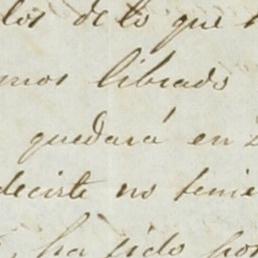 los de lo que
mos librado
quedará en
decirte no tenie
ha sido por